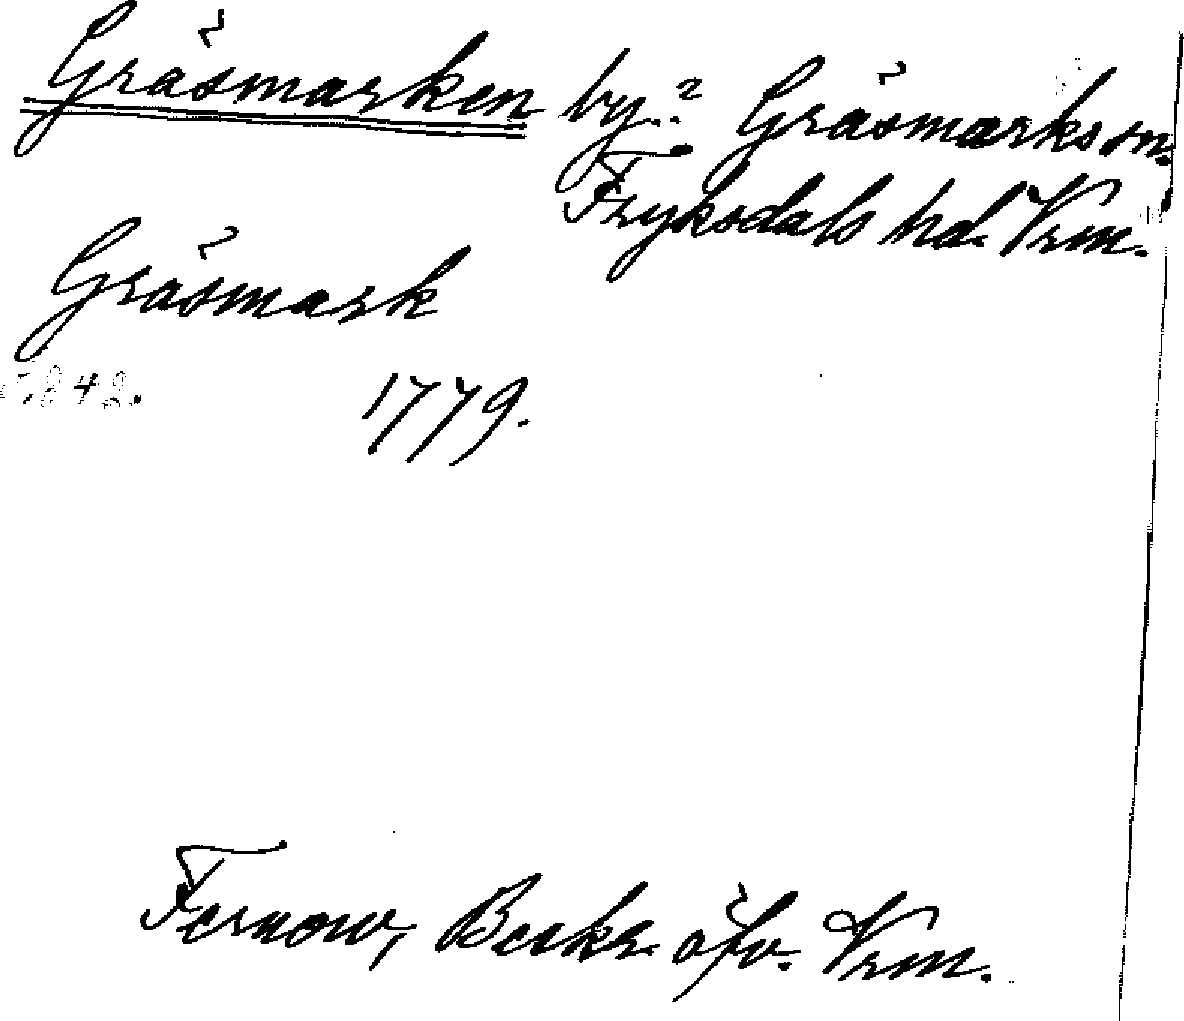 Gräsmarken by? Gräsmarks sn.
Fryksdals hd. Vrm.
Gräsmark
1779.
Fernow, Beskr. öfv. Vrm.